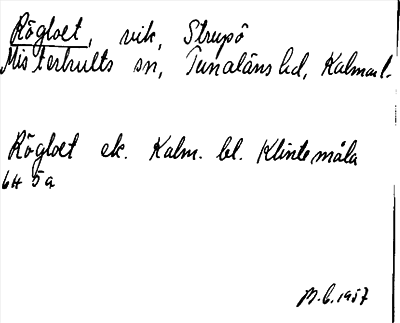 Rögloet, vik, Strupö
Misterhults sn, Tunaläns hd, Kalmar l.
Rögloet ek. Kalm. bl. Klintemåla
6H 5a
M.B. 1957